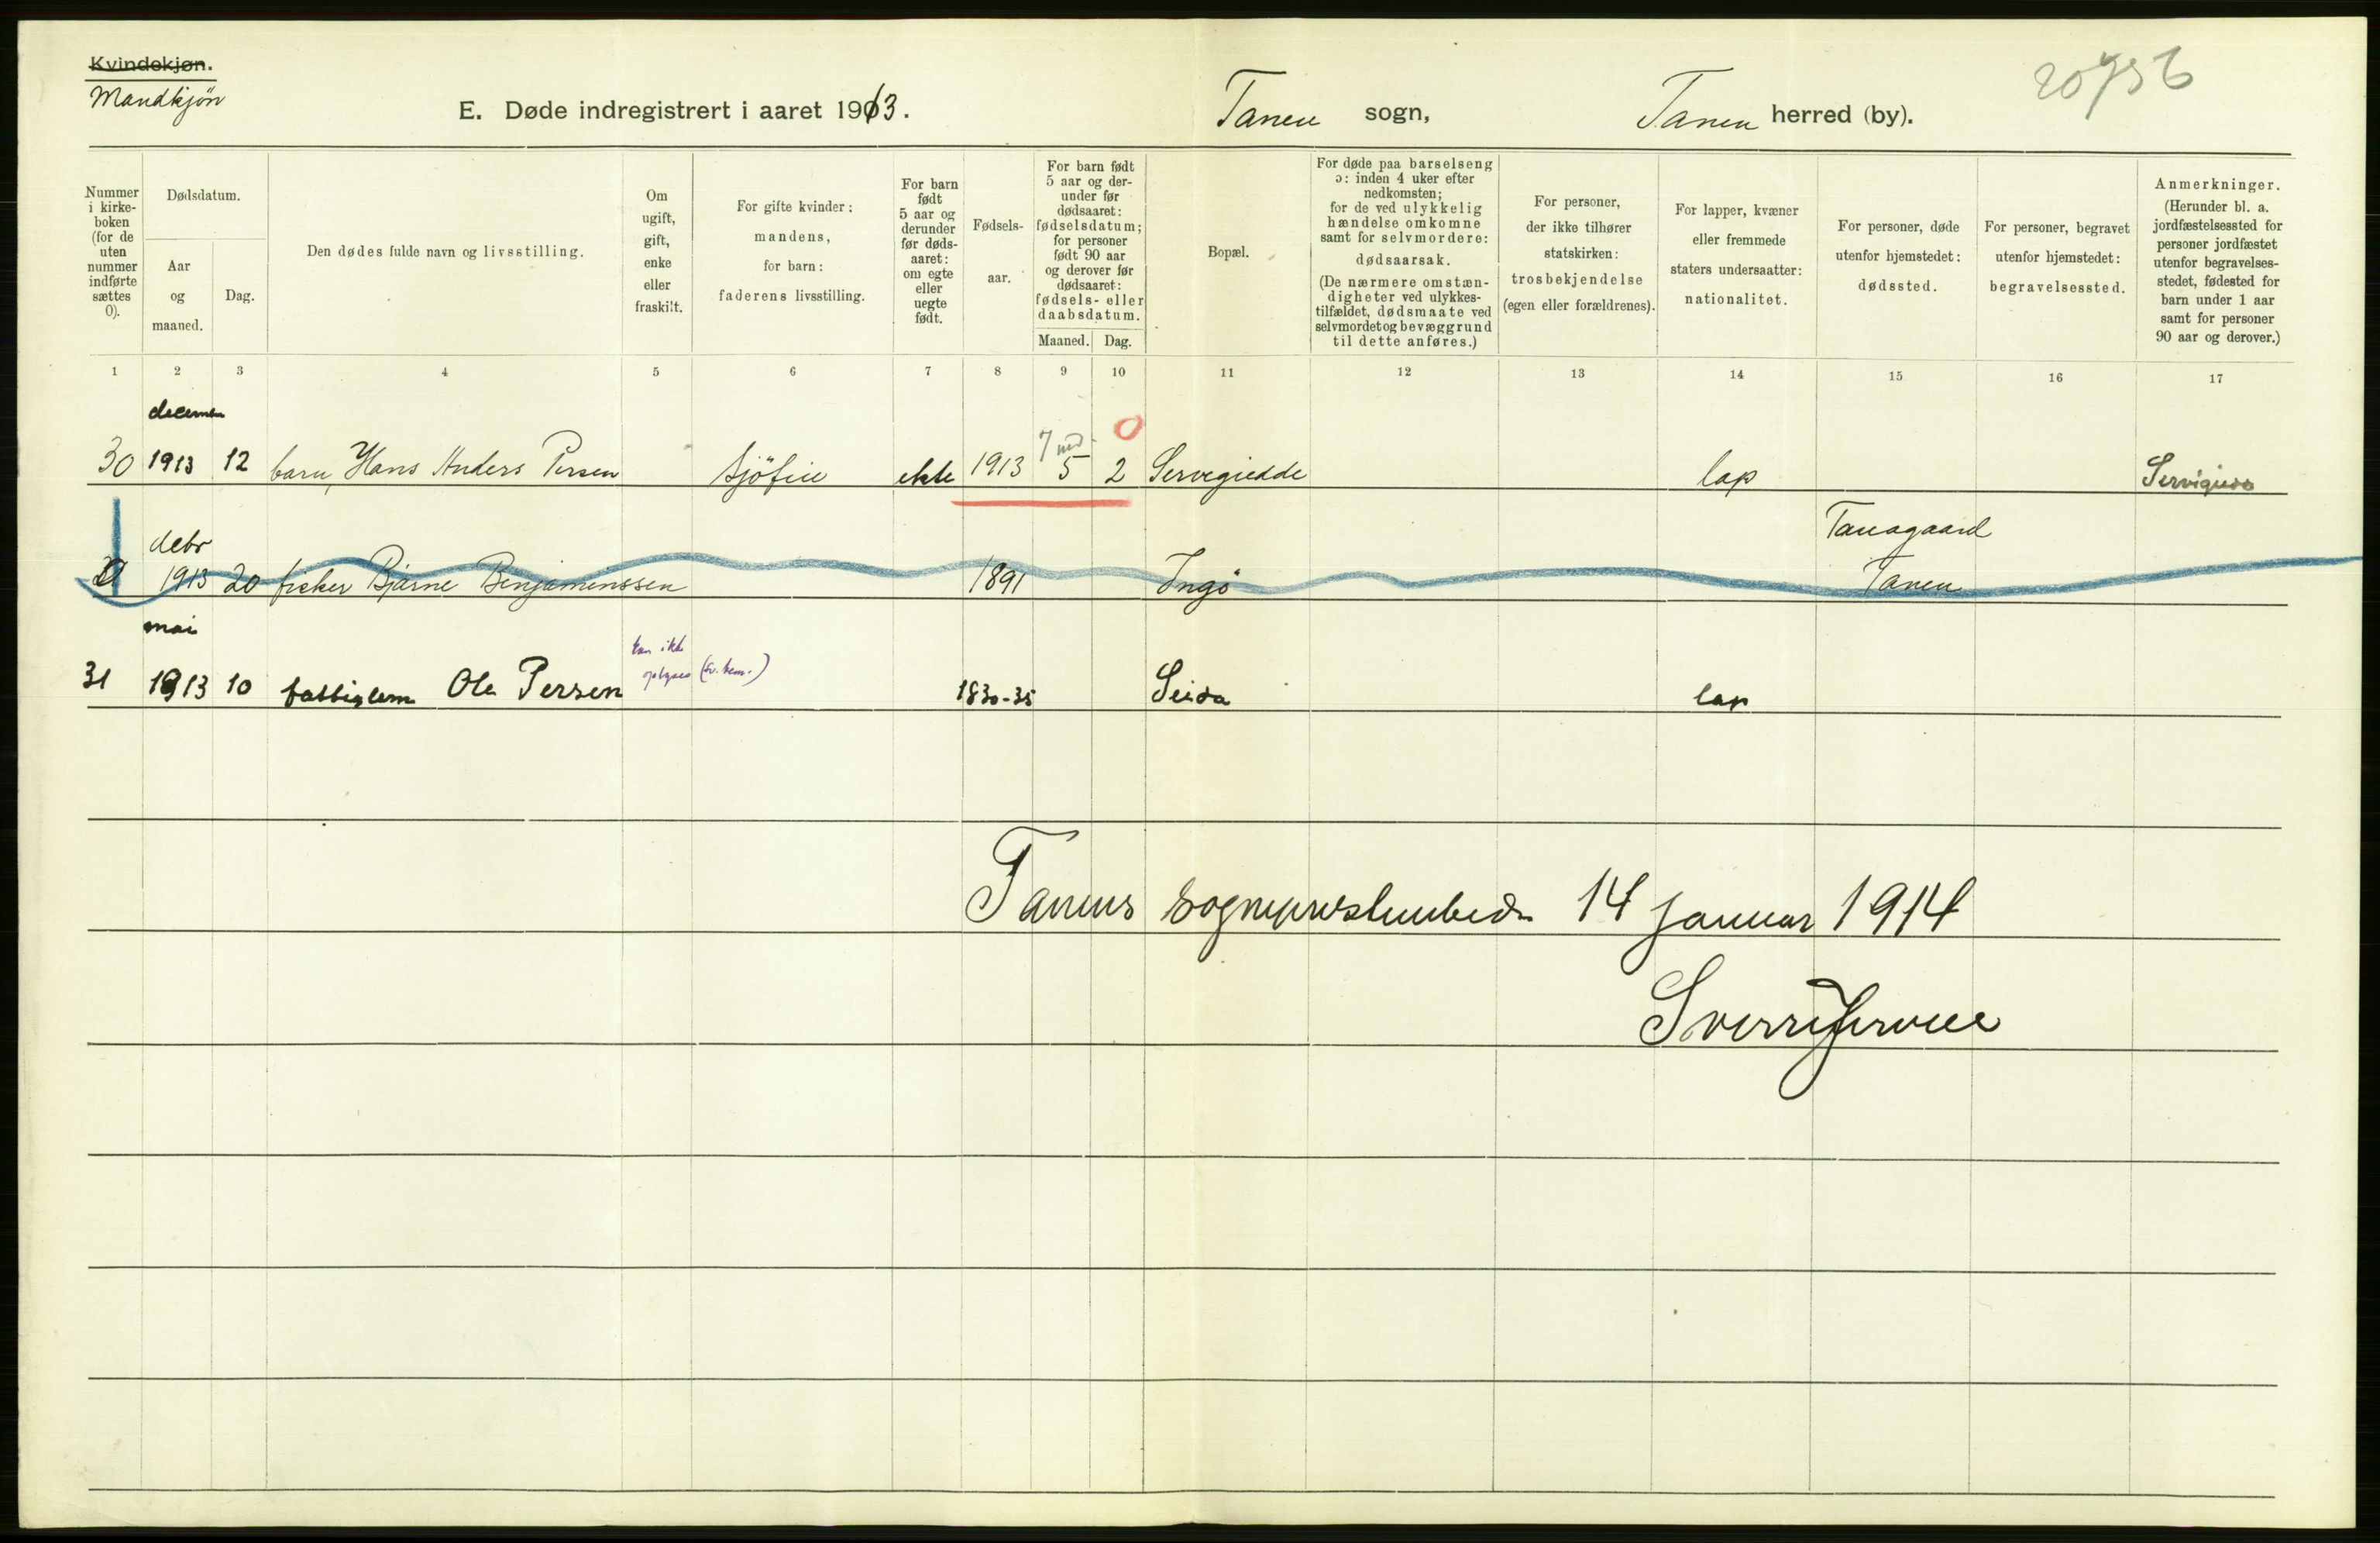 Kvindekjøn.
Mandkjön
E. Døde indregistrert i aaret 1913.
Tanen sogn,
Tanen herred (by).
20756
Nummer i kirke-boken (for de uten nummer indførte sættes 0).
Dødsdatum.
Aar og maaned.
Dag.
Den dødes fulde navn og livsstilling.
Om ugift, gift, enke eller fraskilt.
For gifte kvinder: mandens, for barn: faderens livsstilling.
For barn født 5 aar og derunder før døds-aaret: om egte eller uegte født.
Fødsels-aar.
For barn født 5 aar og der-under før dødsaaret: fødselsdatum; for personer født 90 aar og derover før dødsaaret: fødsels- eller daabsdatum.
Maaned.
Dag.
Bopæl.
For døde paa barselseng ɔ: inden 4 uker efter nedkomsten; for de ved ulykkelig hændelse omkomne samt for selvmordere: dødsaarsak.
(De nærmere omstæn-digheter ved ulykkes-tilfældet, dødsmaate ved selvmordet og bevæggrund til dette anføres.)
For personer, der ikke tilhører statskirken: trosbekjendelse (egen eller forældrenes).
For lapper, kvæner eller fremmede staters undersaatter: nationalitet.
For personer, døde utenfor hjemstedet: dødssted.
For personer, begravet utenfor hjemstedet: begravelsessted.
Anmerkninger. (Herunder bl. a. jordfæstelsessted for personer jordfæstet utenfor begravelses-stedet, fødested for barn under 1 aar samt for personer 90 aar og derover.)
1 2 3 4 5 6 7 8 9 10 11 12 13 14 15 16 17
decemer
7 md. 0
30 1913 12 barn, Hans Anders Persen sjöfin ekte 1913 5 2 Servegiedde lap
debr Tanagaard
1913 20 fisker Bjarne Benjaminssen 1891 Ingö Tanen
mai
kan ikke
oplyses
31 1913 10 fattiglem Ole Persen 1830-35 Seida lap
Tanens sogneprestembede 14 januar 1914